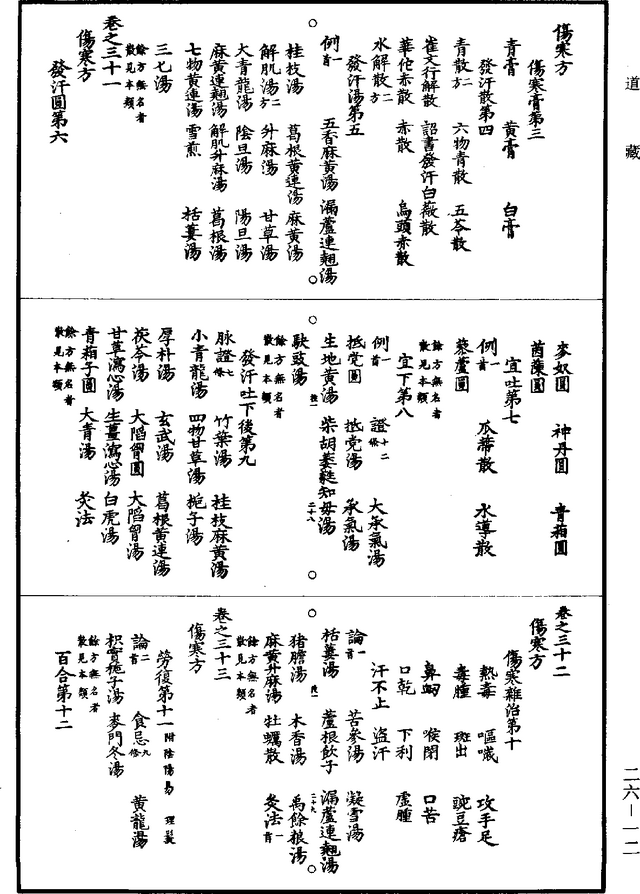 道藏
傷寒方
傷寒膏第三
青膏 黃膏 白膏
發汗散第四
青散二方 六物青散 五苓散
崔文行解散 詔書發汗白薇散
華佗赤散 赤散 烏頭赤散
水解散二方
發汗湯第五
例一首 五香麻黃湯 漏蘆連翹湯
桂枝湯 葛根黃連湯 麻黃湯
解肌湯二方 升麻湯 甘草湯
大青龍湯 陰旦湯 陽旦湯
麻黃連翹湯 解肌升麻湯 葛根湯
七物黃連湯 雪煎 栝蔞湯
三匕湯
餘方無名者散見本類
卷之三十一
傷寒方
發汗圓第六
麥奴圓 神丹圓 青葙圓
茵蔯圓
宜吐第七
例一首 瓜蔕散 水導散
藜蘆圓
餘方無名者散見本類
宜下第八
例一首 證十二條 大承氣湯
抵党圓 抵党湯 承氣湯
生地黃湯 柴胡萎蕤知母湯
駃豉湯
餘方無名者散見本類
發汗吐下後第九
脉證七條 竹葉湯 桂枝麻黃湯
小青龍湯 四物甘草湯 梔子湯
厚朴湯 玄武湯 葛根黃連湯
茯苓湯 大陷胷圓 大陷胷湯
甘草瀉心湯 生薑瀉心湯 白虎湯
青葙子圓 大青湯 灸法
餘方無名者散見本類
卷之三十二
傷寒方
傷寒雜治第十
熱毒 嘔噦 攻手足
毒腫 斑出 豌豆瘡
鼻衄 喉閉 口苦
口乾 下利 虛腫
汗不止 盜汗
論一首 苦參湯 凝雪湯
栝蔞湯 蘆根飲子 漏蘆連翹湯
豬膽湯 木香湯 禹餘粮湯
麻黃升麻湯 牡蠣散 灸法一首
餘方無名者散見本類
卷之三十三
傷寒方
勞復第十一附陰陽易
論二首 食忌九條 黃龍湯
枳實梔子湯 麥門冬湯
餘方無名者散見本類
百合第十二
二六—一二